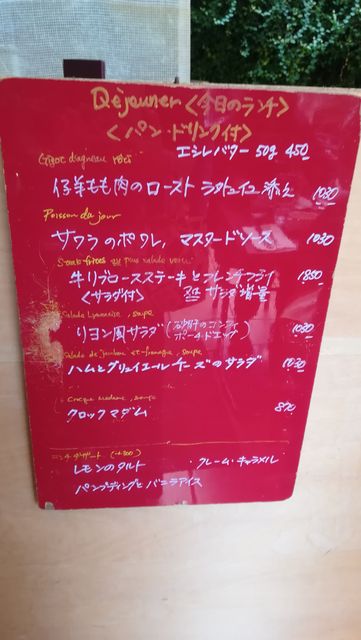 Déjeuner <今日のランチ>
<パン・ドリンク付>
エシレバター 50g 450
Gigot d'agneau rôti
仔羊もも肉のロースト ラタトゥイユ添え 1030
Poisson du jour
サワラのポワレ, マスタードソース 1030
Steak frites ou plus salade verte
牛リブロースステーキとフレンチフライ 1850
<サラダ付> サラダ増量
Salade Lyonnaise, soupe
リヨン風サラダ (砂肝のコンフィ ポーチドエッグ) 1030
Salade de jambon et fromage, soupe
ハムとグリュイエールチーズのサラダ 1030
Croque madame, soupe
クロックマダム 870
ランチデザート (+300)
レモンのタルト ・クレーム・キャラメル
パンプディングとバニラアイス